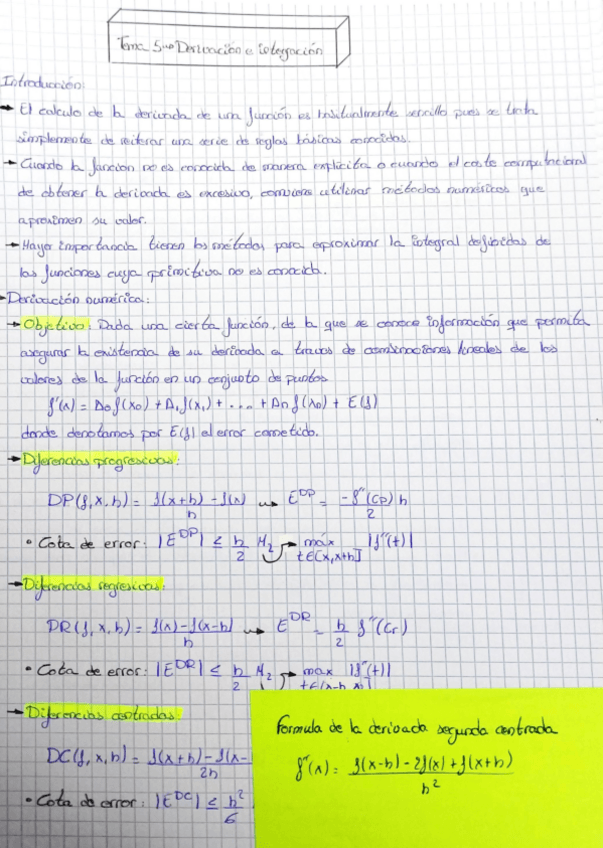 Tema 5 → Derivación e integración
Introducción:
→ El calculo de la derivada de una función es habitualmente sencillo pues se trata
simplemente de reiterar una serie de reglas básicas conocidas.
→ Cuando la función no es conocida de manera explícita o cuando el coste computacional
de obtener la derivada es excesivo, conviene utilizar métodos numéricos que
aproximen su valor.
→ Mayor importancia tienen los métodos para aproximar la integral definidas de
las funciones cuya primitiva no es conocida.
- Derivación numérica:
→ Objetivo: Dada una cierta función, de la que se conoce información que permita
asegurar la existencia de su derivada a través de combinaciones lineales de los
valores de la función en un conjunto de puntos
f'(x) = A0 f(x0) + A1 f(x1) + ... + An f(xn) + E(f)
donde denotamos por E(f) el error cometido.
→ Diferencias progresivas:
DP(f, x, h) = f(x+h) - f(x) / h → E^DP = -f''(Cp) h / 2
• Cota de error: |E^DP| ≤ h/2 M2 → máx t∈[x,x+h] |f''(t)|
→ Diferencias regresivas:
DR(f, x, h) = f(x) - f(x-h) / h → E^DR = h/2 f''(Cr)
• Cota de error: |E^DR| ≤ h/2 M2 → max t∈[x-h, x] |f''(t)|
→ Diferencias centradas:
DC(f, x, h) = f(x+h) - f(x- / 2h
• Cota de error: |E^DC| ≤ h²/6
Formula de la derivada segunda centrada
f''(x) = f(x-h) - 2f(x) + f(x+h) / h²